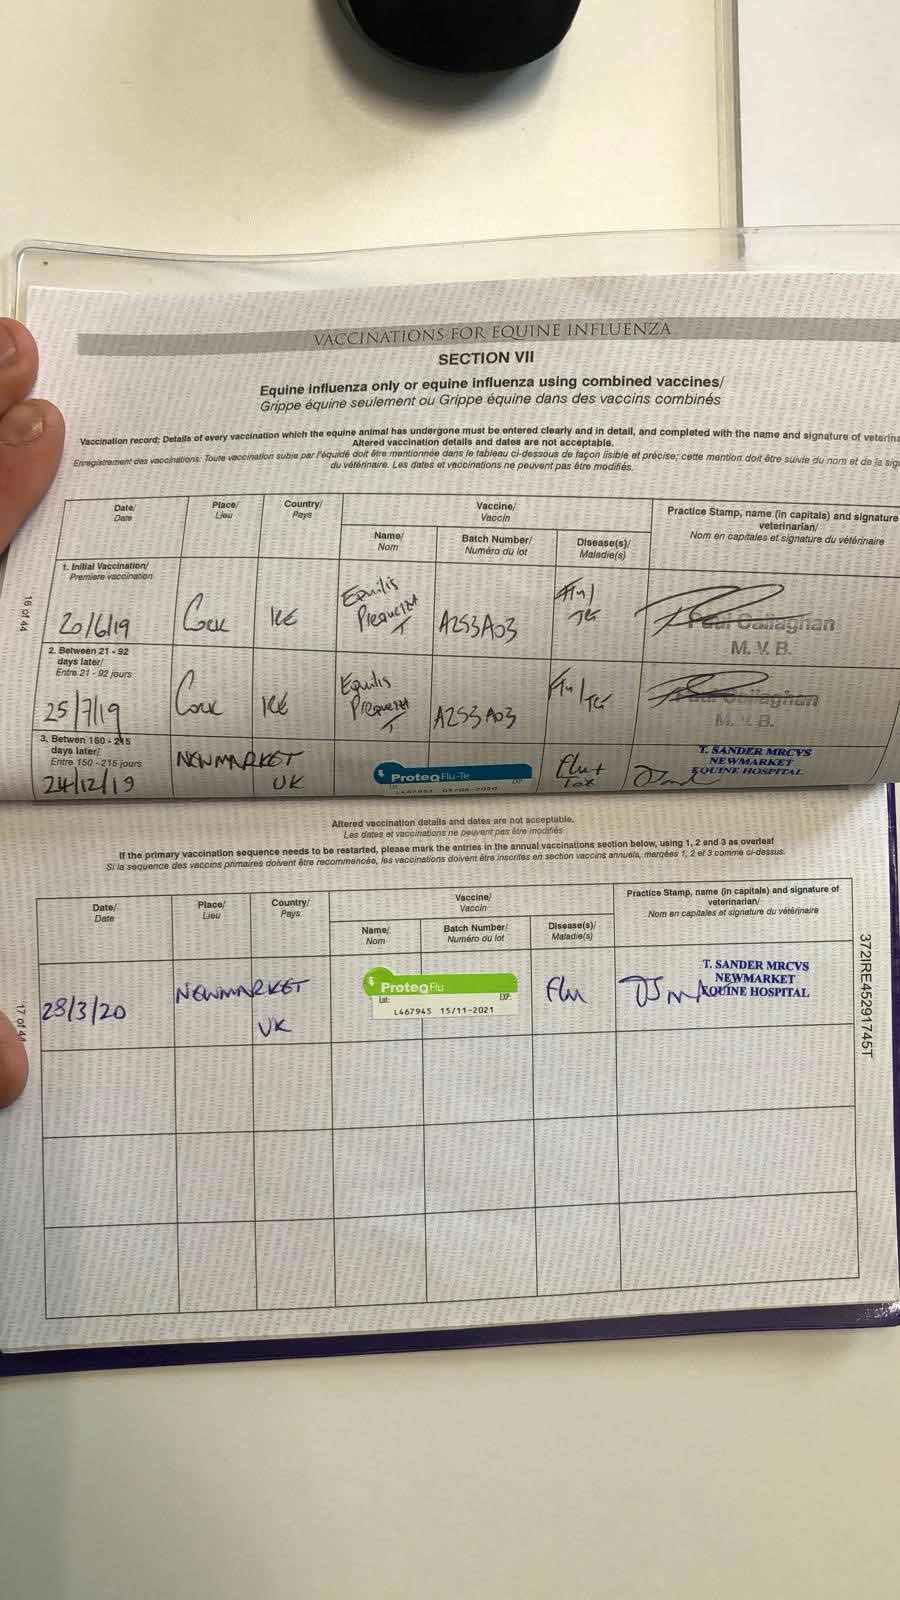 VACCINATIONS FOR EQUINE INFLUENZA
SECTION VII
Equine influenza only or equine influenza using combined vaccines/
Grippe équine seulement ou Grippe équine dans des vaccins combinés
Vaccination record: Details of every vaccination which the equine animal has undergone must be entered clearly and in detail, and completed with the name and signature of veterina
Altered vaccination details and dates are not acceptable.
Enregistrement des vaccinations: Toute vaccination subie par l'équidé doit être mentionnée dans le tableau ci-dessous de façon lisible et précise; cette mention doit être suivie du nom et de la sig
du vétérinaire. Les dates et vaccinations ne peuvent pas être modifiés.
Date/ Place/ Country/ Vaccine/ Practice Stamp, name (in capitals) and signature
Date Lieu Pays Vaccin veterinarian/
Name/ Batch Number/ Disease(s)/ Nom en capitales et signature du vétérinaire
Nom Numéro du lot Maladie(s)
1. Initial Vaccination/
Premiere vaccination
20/6/19 Cork IRE Equilis Prequenza T A253A03 Flu/ TE Paul Gallaghan
M. V. B.
16 of 44
2. Between 21 - 92
days later/
Entre 21 - 92 jours
25/7/19 Cork IRE Equilis Prequenza T A253A03 Flu/TE Paul Gallaghan
M. V. B.
3. Betwen 150 - 215
days later/
Entre 150 - 215 jours
24/12/19 NEWMARKET UK ProteqFlu-Te Flu + Tet T. SANDER MRCVS
NEWMARKET
EQUINE HOSPITAL
Altered vaccination details and dates are not acceptable.
Les dates et vaccinations ne peuvent pas être modifiés
If the primary vaccination sequence needs to be restarted, please mark the entries in the annual vaccinations section below, using 1, 2 and 3 as overleaf
Si la sequence des vaccins primaires doivent être recommencée, les vaccinations doivent être inscrites en section vaccins annuels, marqées 1, 2 et 3 comme ci-dessus.
Date/ Place/ Country/ Vaccine/ Practice Stamp, name (in capitals) and signature of
Date Lieu Pays Vaccin veterinarian/
Name/ Batch Number/ Disease(s)/ Nom en capitales et signature du vétérinaire
Nom Numéro du lot Maladie(s)
28/3/20 NEWMARKET UK ProteqFlu Flu T. SANDER MRCVS
Lot: EXP: NEWMARKET
L467945 15/11-2021 EQUINE HOSPITAL
17 of 44
372IRE45291745T